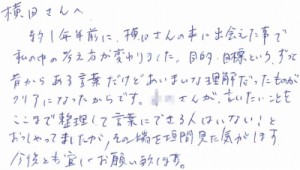 横田さんへ
約1年半前に、横田さんの本に出会えた事で
私の中の考え方が変わりました。目的・目標という、ずっと
昔からある言葉だけどあいまいな理解だったものが
クリアになったからです。さんが、言いたいことを
ここまで整理して言葉にできる人はいない！と
おっしゃってましたが、その端を垣間見た気がします
今後とも宜しくお願い致します。